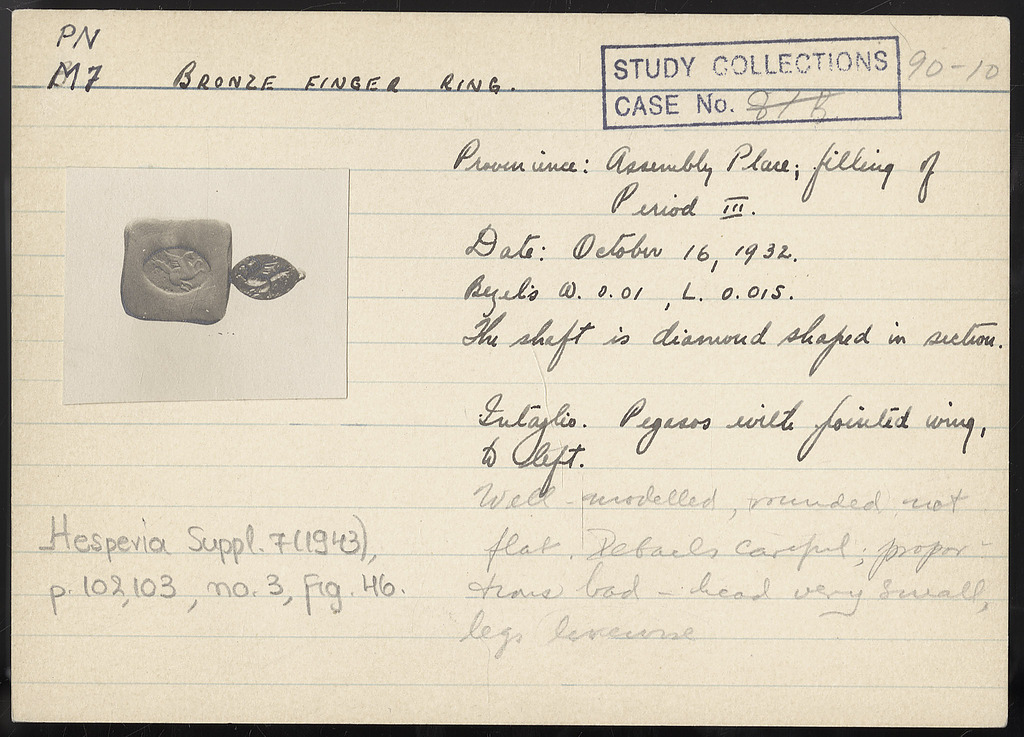 PN
M7 BRONZE FINGER RING.
STUDY COLLECTIONS
CASE No. 8/B
90-10
Provenience: Assembly Place; filling of
Period III.
Date: October 16, 1932.
Bezel's W. 0.01, L. 0.015.
The shaft is diamond shaped in section.
Intaglio. Pegasos with pointed wing,
to left.
Well-modelled, rounded not
flat. Details careful; propor-
tions bad - head very small,
legs likewise
Hesperia Suppl. 7 (1943),
p. 102,103, no. 3, fig. 46.